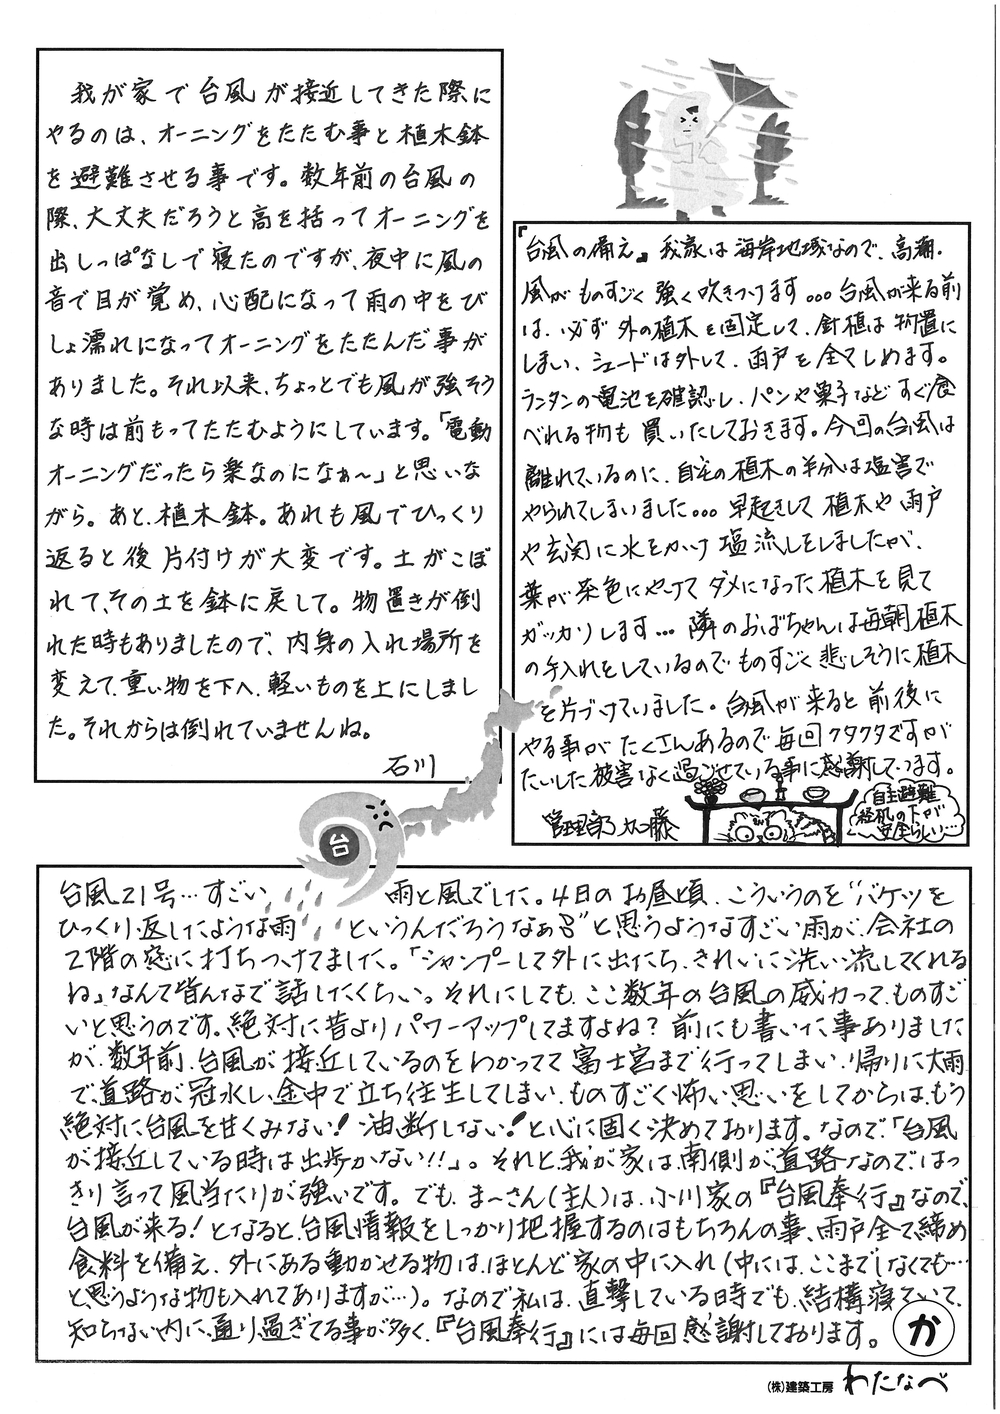 我が家で台風が接近してきた際に
やるのは、オーニングをたたむ事と植木鉢
を避難させる事です。数年前の台風の
際、大丈夫だろうと高を括ってオーニングを
出しっぱなしで寝たのですが、夜中に風の
音で目が覚め、心配になって雨の中をび
しょ濡れになってオーニングをたたんだ事が
ありました。それ以来、ちょっとでも風が強そう
な時は前もってたたむようにしています。「電動
オーニングだったら楽なのになぁ〜」と思いな
がら。あと、植木鉢。あれも風でひっくり
返ると後片付けが大変です。土がこぼ
れて、その土を鉢に戻して。物置きが倒
れた時もありましたので、内身の入れ場所を
変えて、重い物を下へ、軽いものを上にしまし
た。それからは倒れていませんね。
石川
『台風の備え』我家は海岸地域なので、高潮・
風がものすごく強く吹きつけます…台風が来る前
は、必ず外の植木を固定して、鉢植は物置に
しまい、シェードは外して、雨戸を全てしめます。
ランタンの電池を確認し、パンや菓子などすぐ食
べれる物も買いたしておきます。今回の台風は
離れているのに、自宅の植木の半分は塩害で
やられてしまいました…早起きして植木や雨戸
や玄関に水をかけ塩流しをしましたが、
葉が茶色にやけてダメになった植木を見て
ガッカリします…隣のおばちゃんは毎朝植木
の手入れをしているのでものすごく悲しそうに植木
を片づけていました。台風が来ると前後に
やる事がたくさんあるので毎回クタクタですが
たいした被害なく過ごせている事に感謝しています。
管理部 加藤
自主避難
経机の下が
安全らしい…
台
台風21号…すごい雨と風でした。4日のお昼頃、こういうのを“バケツを
ひっくり返したような雨というんだろうなぁ”と思うようなすごい雨が、会社の
2階の窓に打ちつけてました。「シャンプーして外に出たら、きれいに洗い流してくれる
ね」なんて皆んなで話したくらい。それにしても、ここ数年の台風の威力って、ものすご
いと思うのです。絶対に昔よりパワーアップしてますよね？前にも書いた事ありました
が、数年前、台風が接近しているのをわかってて富士宮まで行ってしまい、帰りに大雨
で、道路が冠水し、途中で立ち往生してしまい、ものすごく怖い思いをしてからは、もう
絶対に台風を甘くみない！油断しない！と心に固く決めております。なので、「台風
が接近している時は出歩かない!!」。それと、我が家は、南側が道路なので、はっ
きり言って風当たりが強いです。でも、ま〜さん(主人)は、小川家の『台風奉行』なので、
台風が来る！となると、台風情報をしっかり把握するのはもちろんの事、雨戸全て締め
食料を備え、外にある動かせる物は、ほとんど家の中に入れ(中には、ここまでしなくても…
と、思うような物も入れてありますが…)。なので私は、直撃している時でも、結構寝ていて、
知らない内に、通り過ぎてる事が多く、『台風奉行』には毎回感謝しております。
か
(株)建築工房 わたなべ